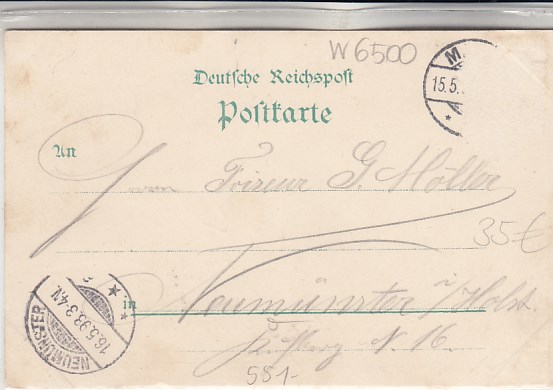 W 6500
M
15.5.
Deutsche Reichspost
Postkarte
An
Herrn Friseur G. Möller
35€
in Neumünster i/Holst.
N. 16.
NEUMÜNSTER
16.5.93.3-4.N
551-